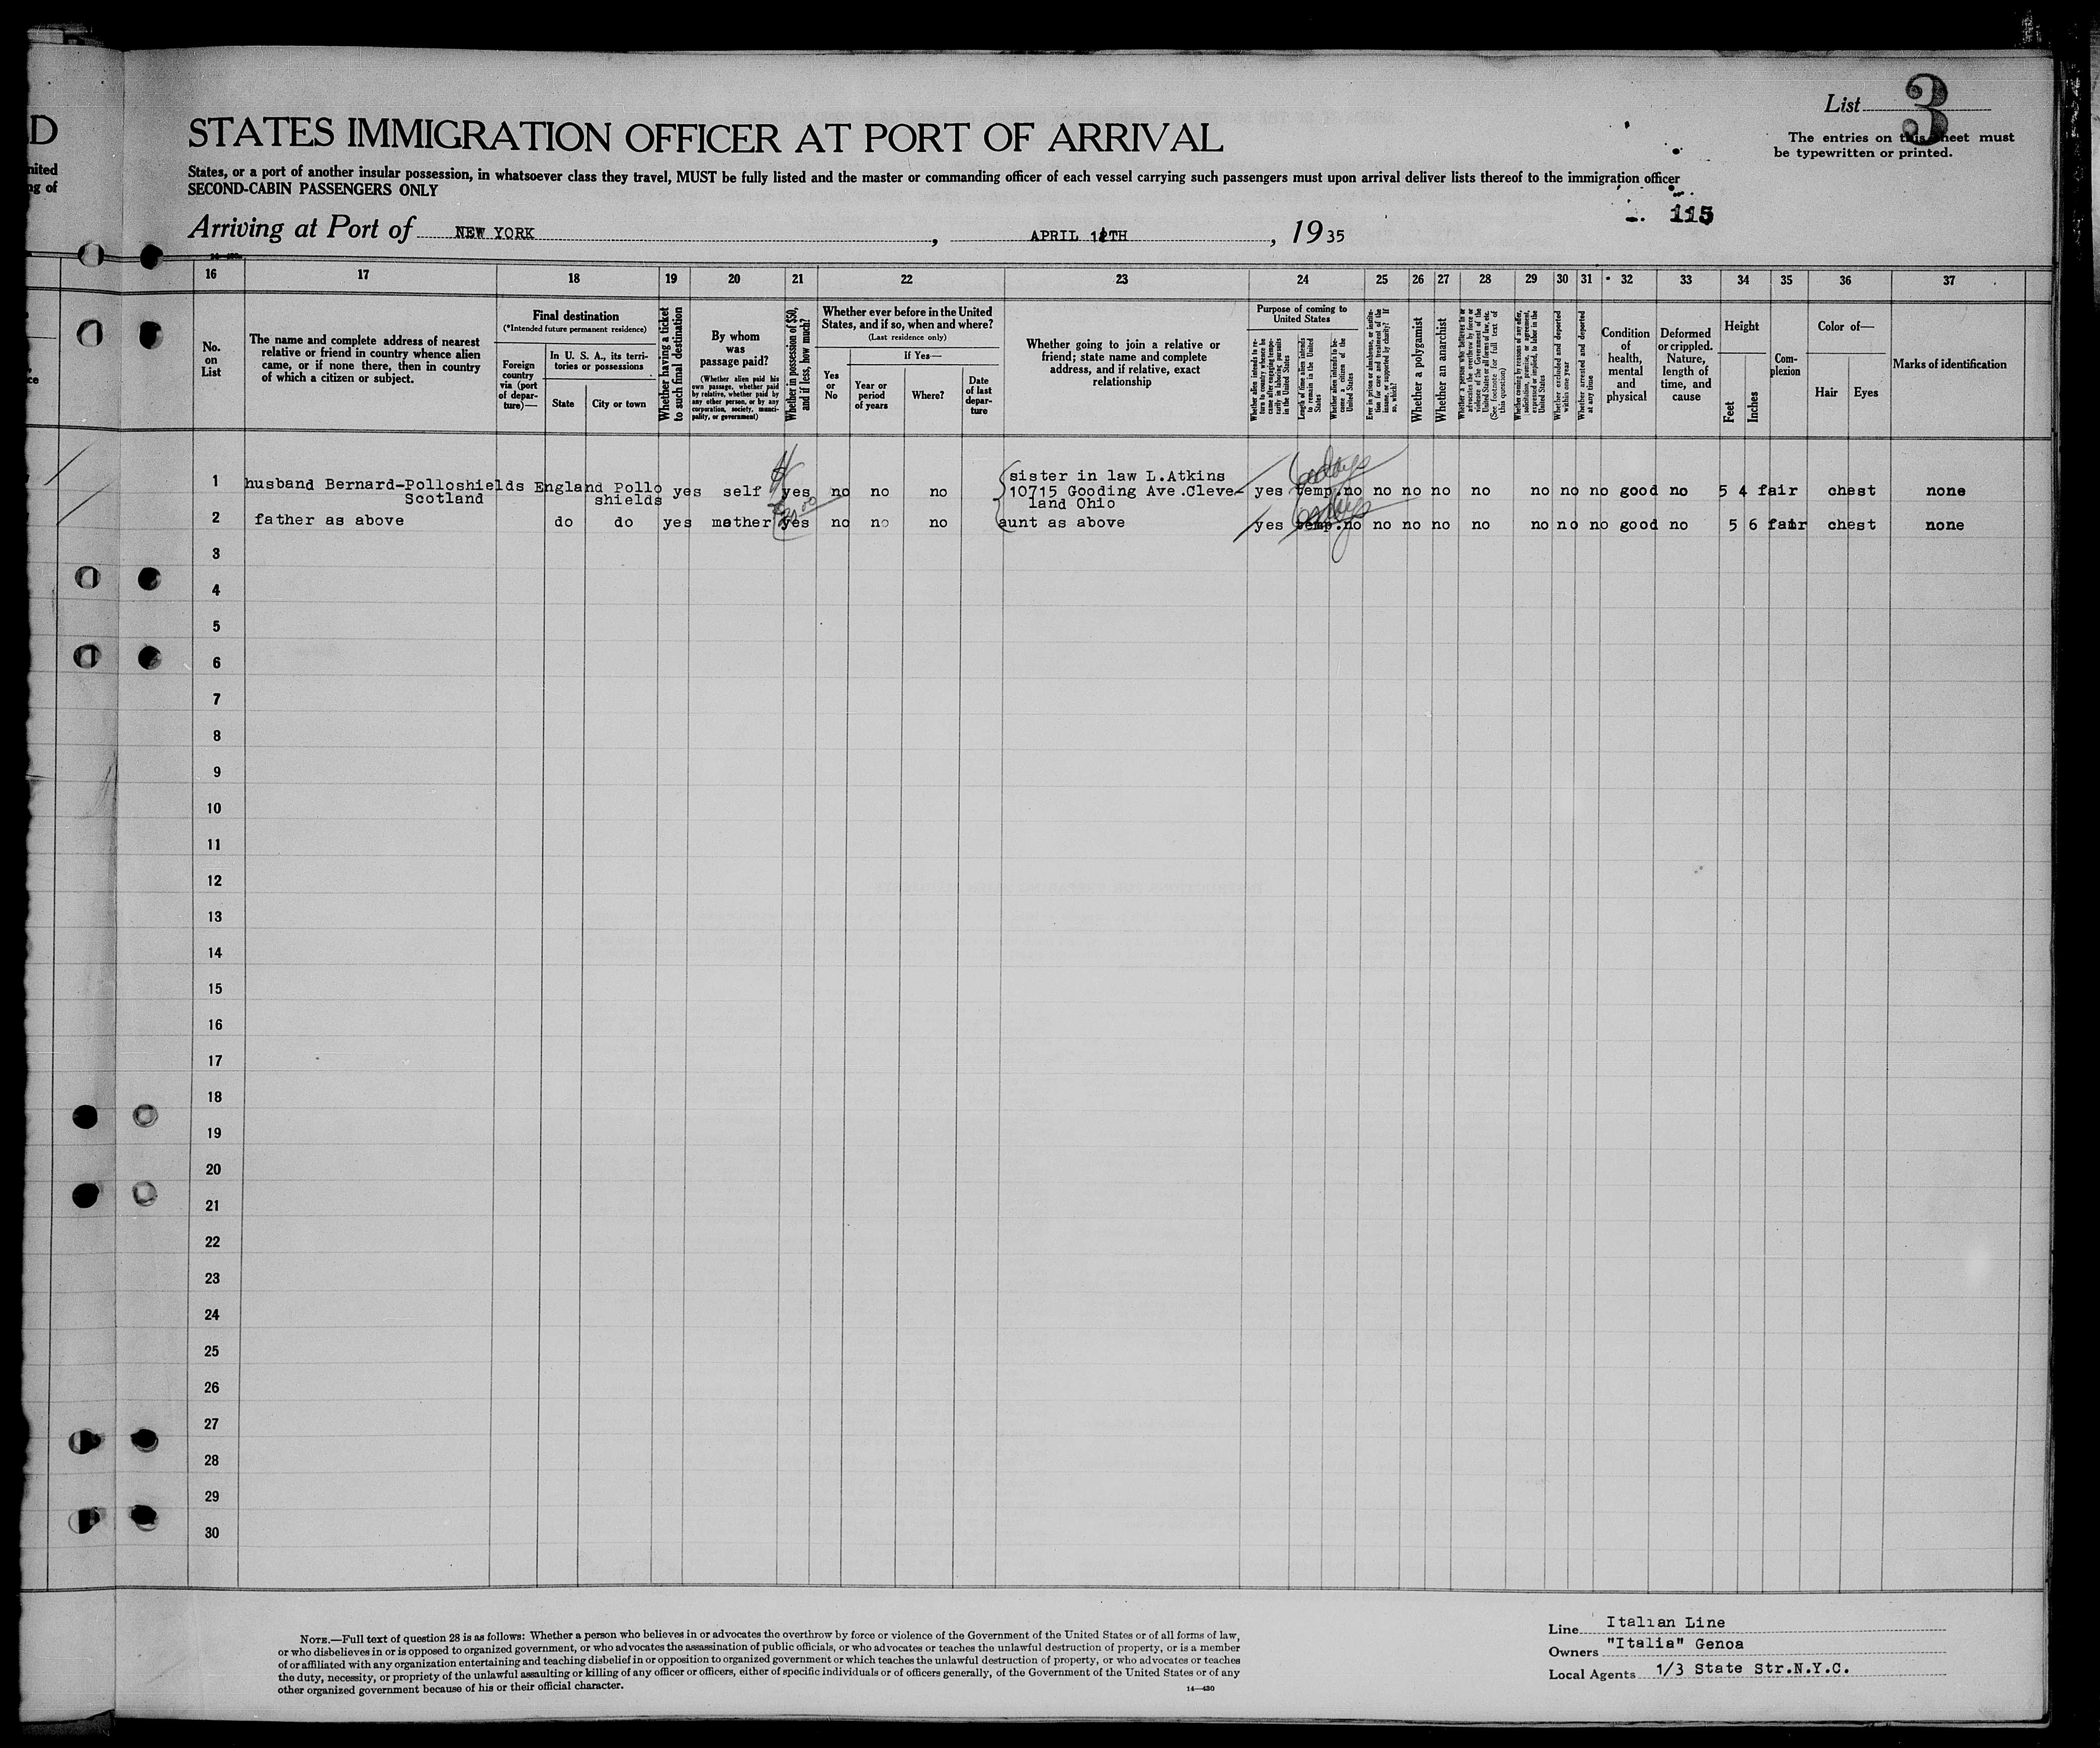 D
nited
ng of
List 3
The entries on this sheet must
be typewritten or printed.
STATES IMMIGRATION OFFICER AT PORT OF ARRIVAL
States, or a port of another insular possession, in whatsoever class they travel, MUST be fully listed and the master or commanding officer of each vessel carrying such passengers must upon arrival deliver lists thereof to the immigration officer
SECOND-CABIN PASSENGERS ONLY
115
Arriving at Port of NEW YORK, APRIL TH, 1935
16 17 18 19 20 21 22 23 24 25 26 27 28 29 30 31 32 33 34 35 36 37
No. on List
The name and complete address of nearest
relative or friend in country whence alien
came, or if none there, then in country
of which a citizen or subject.
Final destination
(*Intended future permanent residence)
Foreign country via (port of departure)—
In U. S. A., its territories or possessions
State
City or town
Whether having a ticket to such final destination
By whom was passage paid?
(Whether alien paid his own passage, whether paid by relative, whether paid by any other person, or by any corporation, society, municipality, or government)
Whether in possession of $50, and if less, how much?
Whether ever before in the United States, and if so, when and where?
(Last residence only)
Yes or No
If Yes—
Year or period of years
Where?
Date of last departure
Whether going to join a relative or
friend; state name and complete
address, and if relative, exact
relationship
Purpose of coming to United States
Whether alien intends to return to country whence he came after engaging temporarily in laboring pursuits in the United States
Length of time alien intends to remain in the United States
Whether alien intends to become a citizen of the United States
Ever in prison or almshouse, or institution for care and treatment of the insane, or supported by charity? If so, which?
Whether a polygamist
Whether an anarchist
Whether a person who believes in or advocates the overthrow by force or violence of the Government of the United States or all forms of law, etc. (See footnote for full text of this question)
Whether coming by reasons of any offer, solicitation, promise, or agreement, expressed or implied, to labor in the United States
Whether excluded and deported within one year
Whether arrested and deported at any time
Condition of health, mental and physical
Deformed or crippled. Nature, length of time, and cause
Height
Feet
Inches
Complexion
Color of—
Hair
Eyes
Marks of identification
1 husband Bernard-Polloshields England Pollo shields yes self yes no no no sister in law L.Atkins yes temp.no no no no no no no no good no 5 4 fair chest none
Scotland 10715 Gooding Ave.Cleve-
land Ohio
2 father as above do do yes mother yes no no no aunt as above yes temp.no no no no no no no no good no 5 6 fair chest none
3
4
5
6
7
8
9
10
11
12
13
14
15
16
17
18
19
20
21
22
23
24
25
26
27
28
29
30
NOTE.—Full text of question 28 is as follows: Whether a person who believes in or advocates the overthrow by force or violence of the Government of the United States or of all forms of law,
or who disbelieves in or is opposed to organized government, or who advocates the assassination of public officials, or who advocates or teaches the unlawful destruction of property, or is a member
of or affiliated with any organization entertaining and teaching disbelief in or opposition to organized government or which teaches the unlawful destruction of property, or who advocates or teaches
the duty, necessity, or propriety of the unlawful assaulting or killing of any officer or officers, either of specific individuals or of officers generally, of the Government of the United States or of any
other organized government because of his or their official character.
14—430
Line Italian Line
Owners "Italia" Genoa
Local Agents 1/3 State Str.N.Y.C.